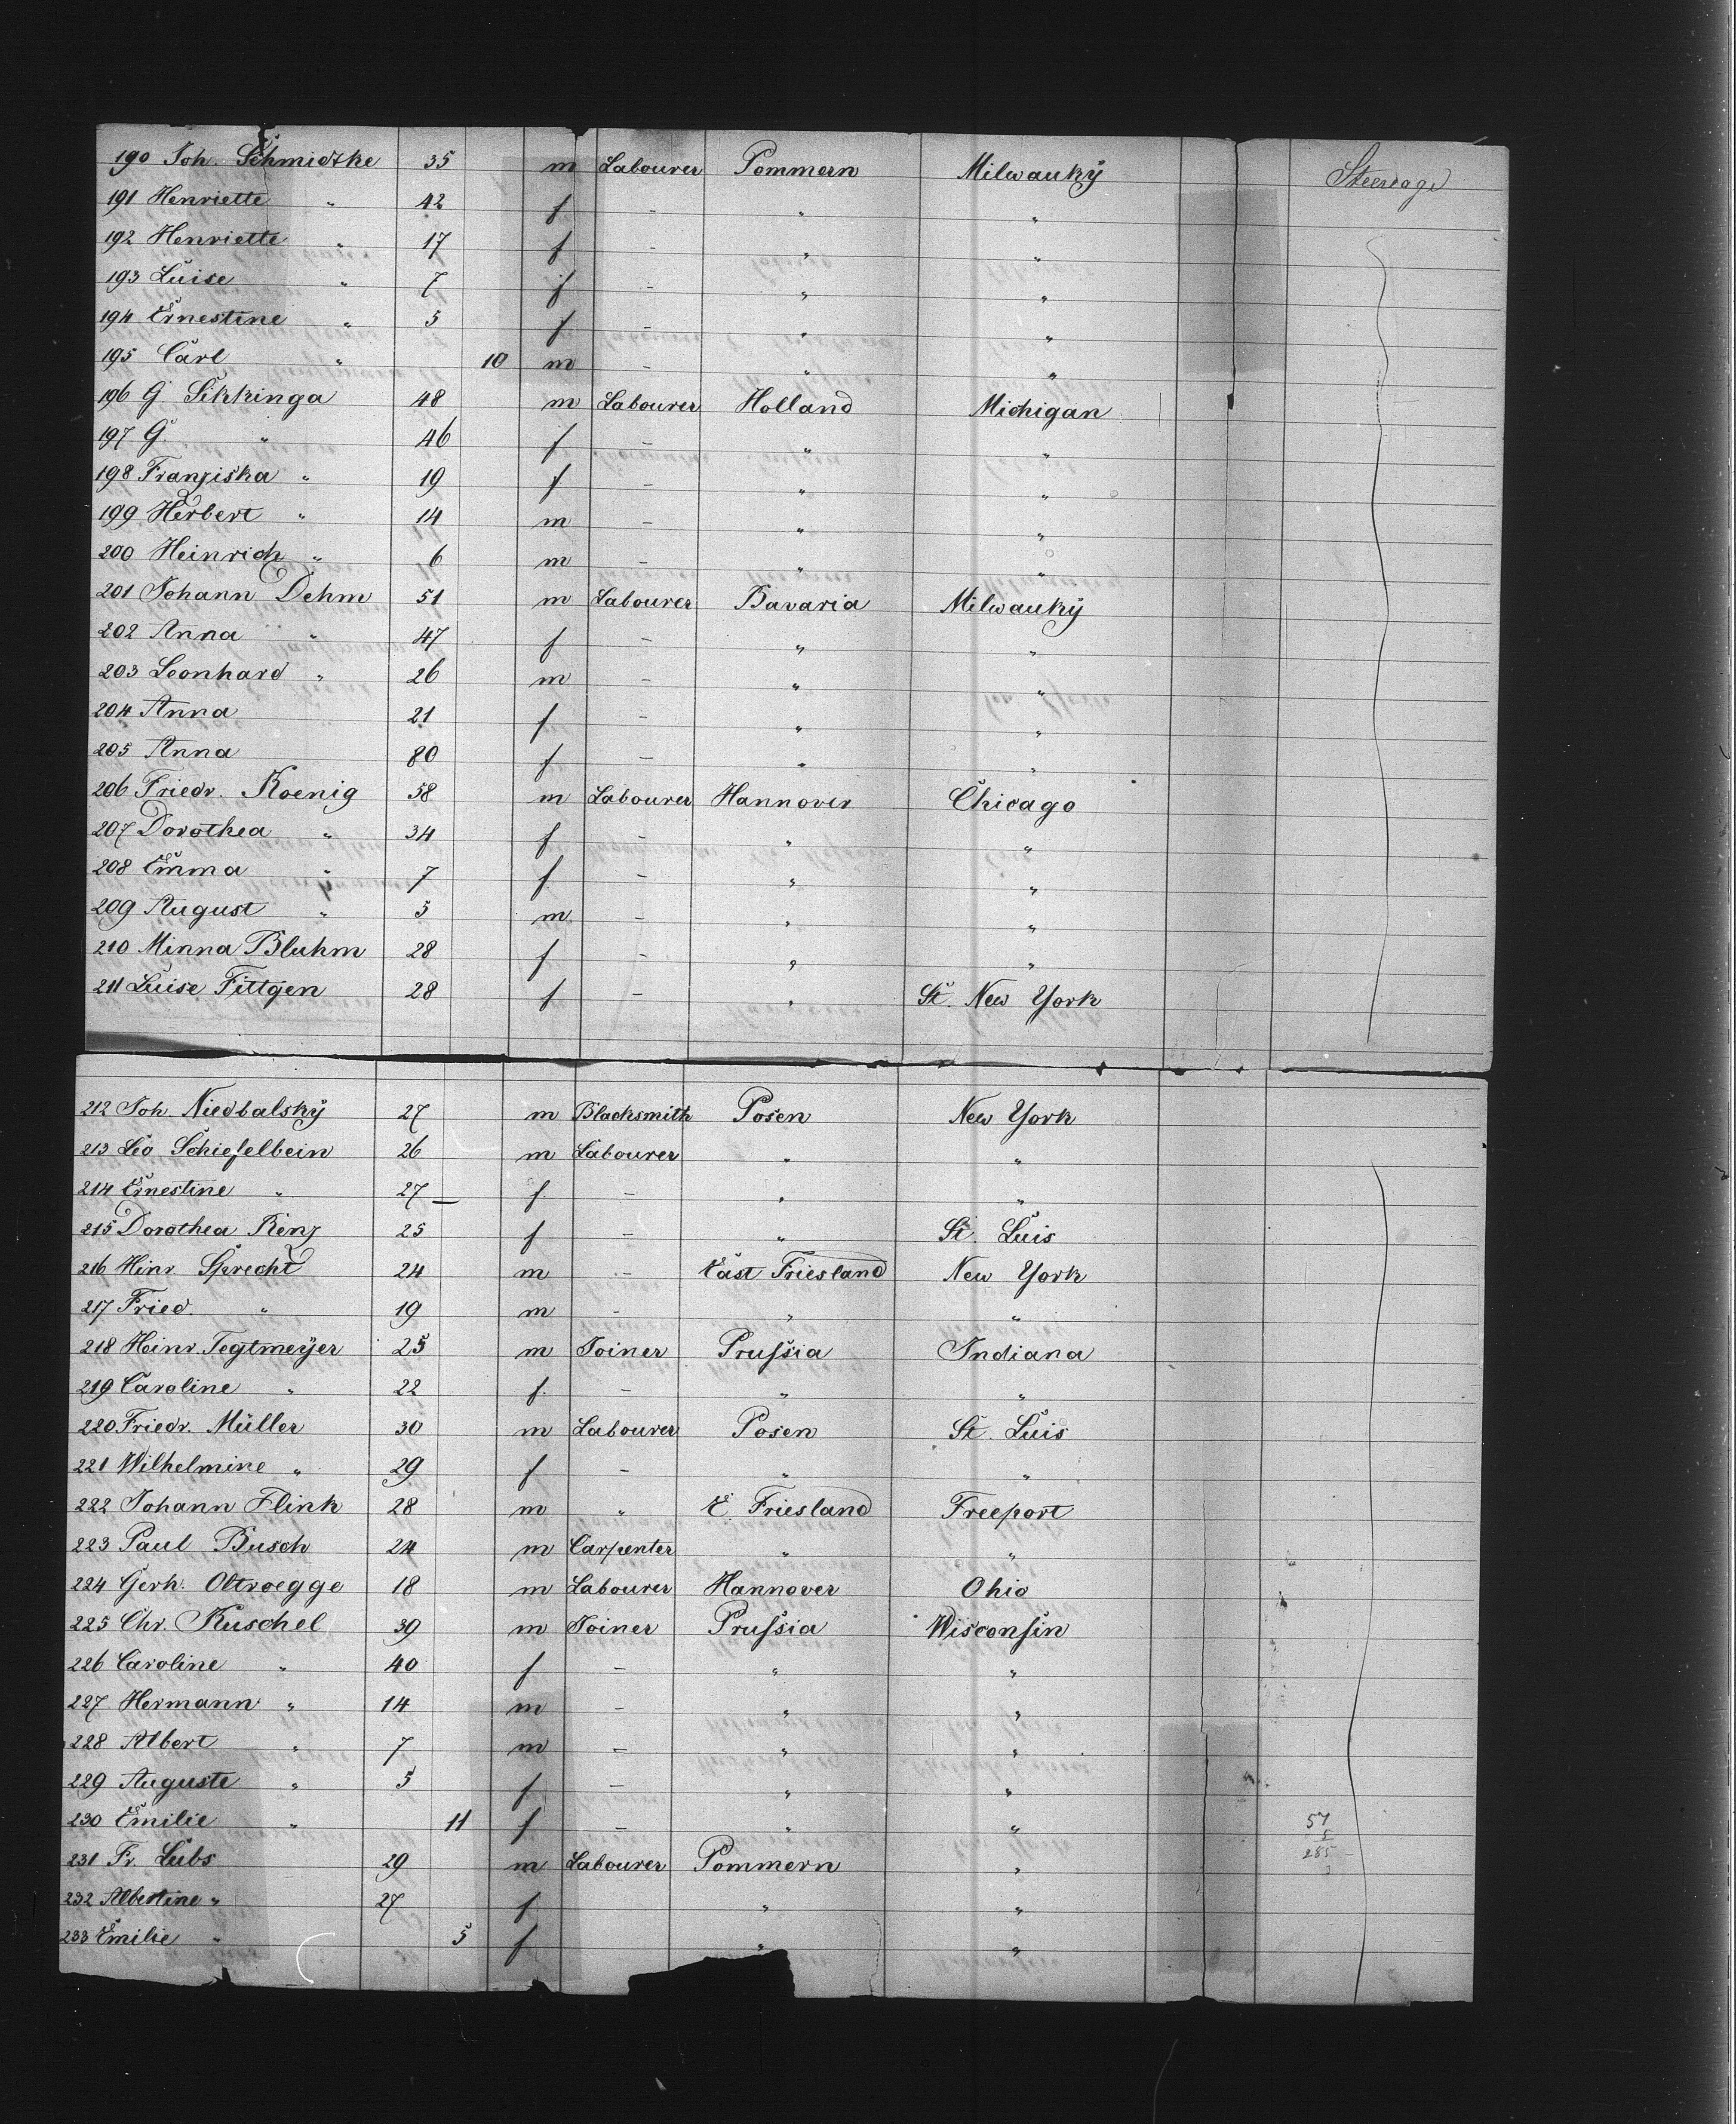 190 Joh. Schmidtke 35 m Labourer Pommern Milwauky Steerage
191 Henriette " 42 f - " "
192 Henriette " 17 f - " "
193 Luise " 7 f - " "
194 Ernestine " 5 f - " "
195 Carl " 10 m - " "
196 G Sikkinga 48 m Labourer Holland Michigan
197 G. " 46 f - " "
198 Franziska " 19 f - " "
199 Herbert " 14 m - " "
200 Heinrich " 6 m - " "
201 Johann Dehm 51 m Labourer Bavaria Milwauky
202 Anna " 47 f - " "
203 Leonhard " 26 m - " "
204 Anna 21 f - " "
205 Anna 80 f - " "
206 Friedr. Koenig 58 m Labourer Hannover Chicago
207 Dorothea " 34 f - " "
208 Emma " 7 f - " "
209 August " 5 m - " "
210 Minna Bluhm 28 f - " "
211 Luise Fittgen 28 f - " St. New York
212 Joh. Niedbalsky 27 m Blacksmith Posen New York
213 Leo Schiefelbein 26 m Labourer " "
214 Ernestine " 27 — f. - " "
215 Dorothea Renz 25 f - " St. Luis
216 Hinr. Sprecht 24 m - East Friesland New York
217 Fried. " 19 m - " "
218 Heinr. Tegtmeÿer 25 m Joiner Prussia Indiana
219 Caroline " 22 f. - " "
220 Friedr. Müller 30 m Labourer Posen St. Luis
221 Wilhelmine " 29 f - " "
222 Johann Flink 28 m " E. Friesland Freeport
223 Paul Busch 24 m Carpenter " "
224 Gerh. Oltroegge 18 m Labourer Hannover Ohio
225 Chr. Kuschel 39 m Joiner Prussia Wisconsin
226 Caroline " 40 f - " "
227 Hermann " 14 m - " "
228 Albert " 7 m - " "
229 Auguste " 5 f - " "
230 Emilie " 11 f - " " 57
5
231 Fr. Lubs 29 m Labourer Pommern " 285
232 Albertine " 27 f " "
233 Emilie " 5 f " "